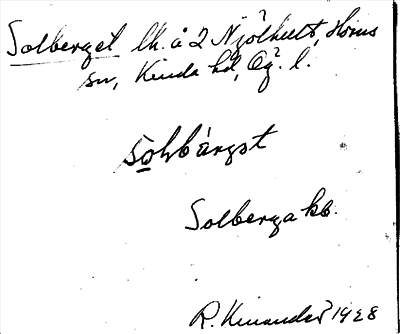 Solberget lh. å 2 Njölhult, Horns
sn, Kinda hd, Ög. l.
sọhbärgət
Solberga kb.
R. Kinander 1928